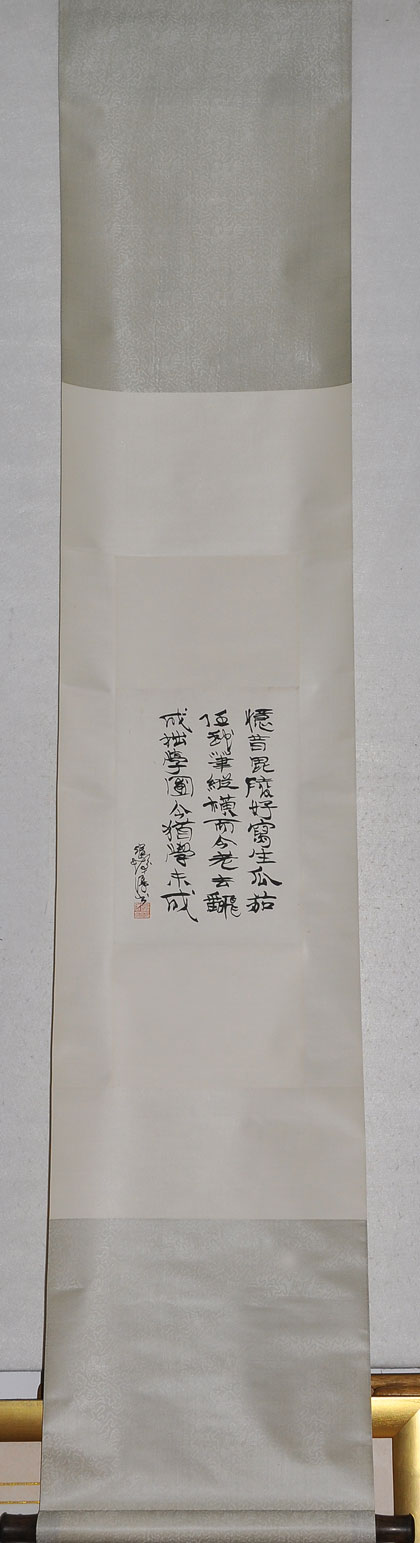 憶昔毘陵好寫生瓜茄
任我筆縱橫而今老去飜
成拙學圃今猶學未成